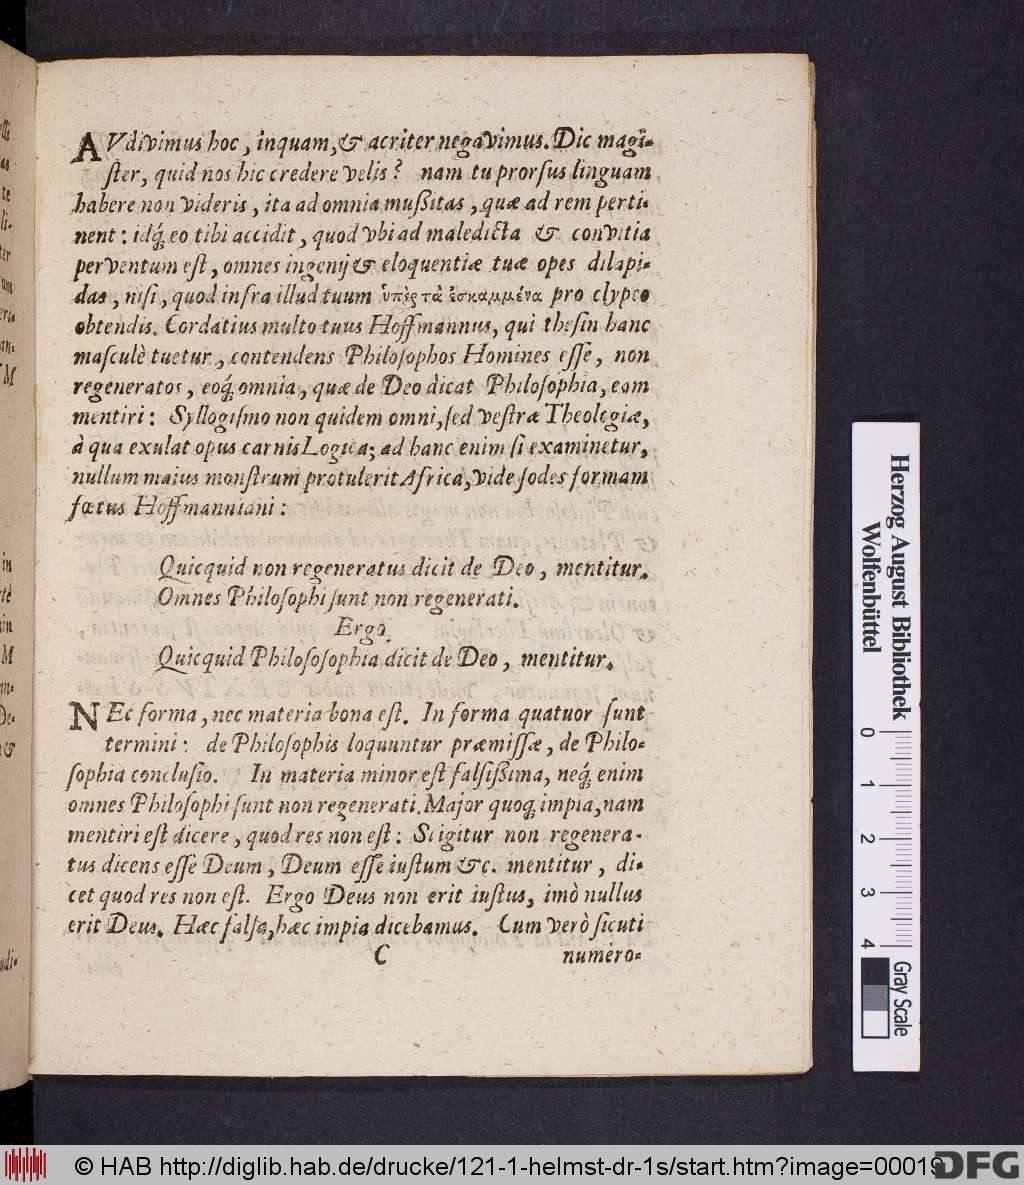 AVdivimus hoc, inquam, & acriter negavimus. Dic magi-
ſter, quid nos hic credere velis? nam tu prorſus linguam
habere non videris, ita ad omnia muſsitas, quæ ad rem perti-
nent: idq́; eo tibi accidit, quod vbi ad maledicta & convitia
perventum eſt, omnes ingenij & eloquentiæ tuæ opes dilapi-
das, niſi, quod infra illud tuum ὑπὲρ τὰ ἐσκαμμένα pro clypeo
obtendis. Cordatius multo tuus Hoffmannus, qui theſin hanc
maſculè tuetur, contendens Philoſophos Homines eſſe, non
regeneratos, eoq́; omnia, quæ de Deo dicat Philoſophia, eam
mentiri: Syllogiſmo non quidem omni, ſed veſtræ Theologiæ,
à qua exulat opus carnis Logica; ad hanc enim ſi examinetur,
nullum maius monſtrum protulerit Africa, vide ſodes formam
fœtus Hoffmanniani:
Quicquid non regeneratus dicit de Deo, mentitur.
Omnes Philoſophi ſunt non regenerati.
Ergo.
Quicquid Philoſoſophia dicit de Deo, mentitur.
NEc forma, nec materia bona eſt. In forma quatuor ſunt
termini: de Philoſophis loquuntur præmiſſæ, de Philo-
ſophia concluſio. In materia minor eſt falſiſsima, neq́; enim
omnes Philoſophi ſunt non regenerati. Major quoq́; impia, nam
mentiri eſt dicere, quod res non eſt: Si igitur non regenera-
tus dicens eſſe Deum, Deum eſſe iuſtum &c. mentitur, di-
cet quod res non eſt. Ergo Deus non erit iuſtus, imò nullus
erit Deus. Hæc falſa, hæc impia dicebamus. Cum verò ſicuti
C numero-
Herzog August Bibliothek
Wolfenbüttel
0 1 2 3 4
Gray Scale
© HAB http://diglib.hab.de/drucke/121-1-helmst-dr-1s/start.htm?image=00019
DFG